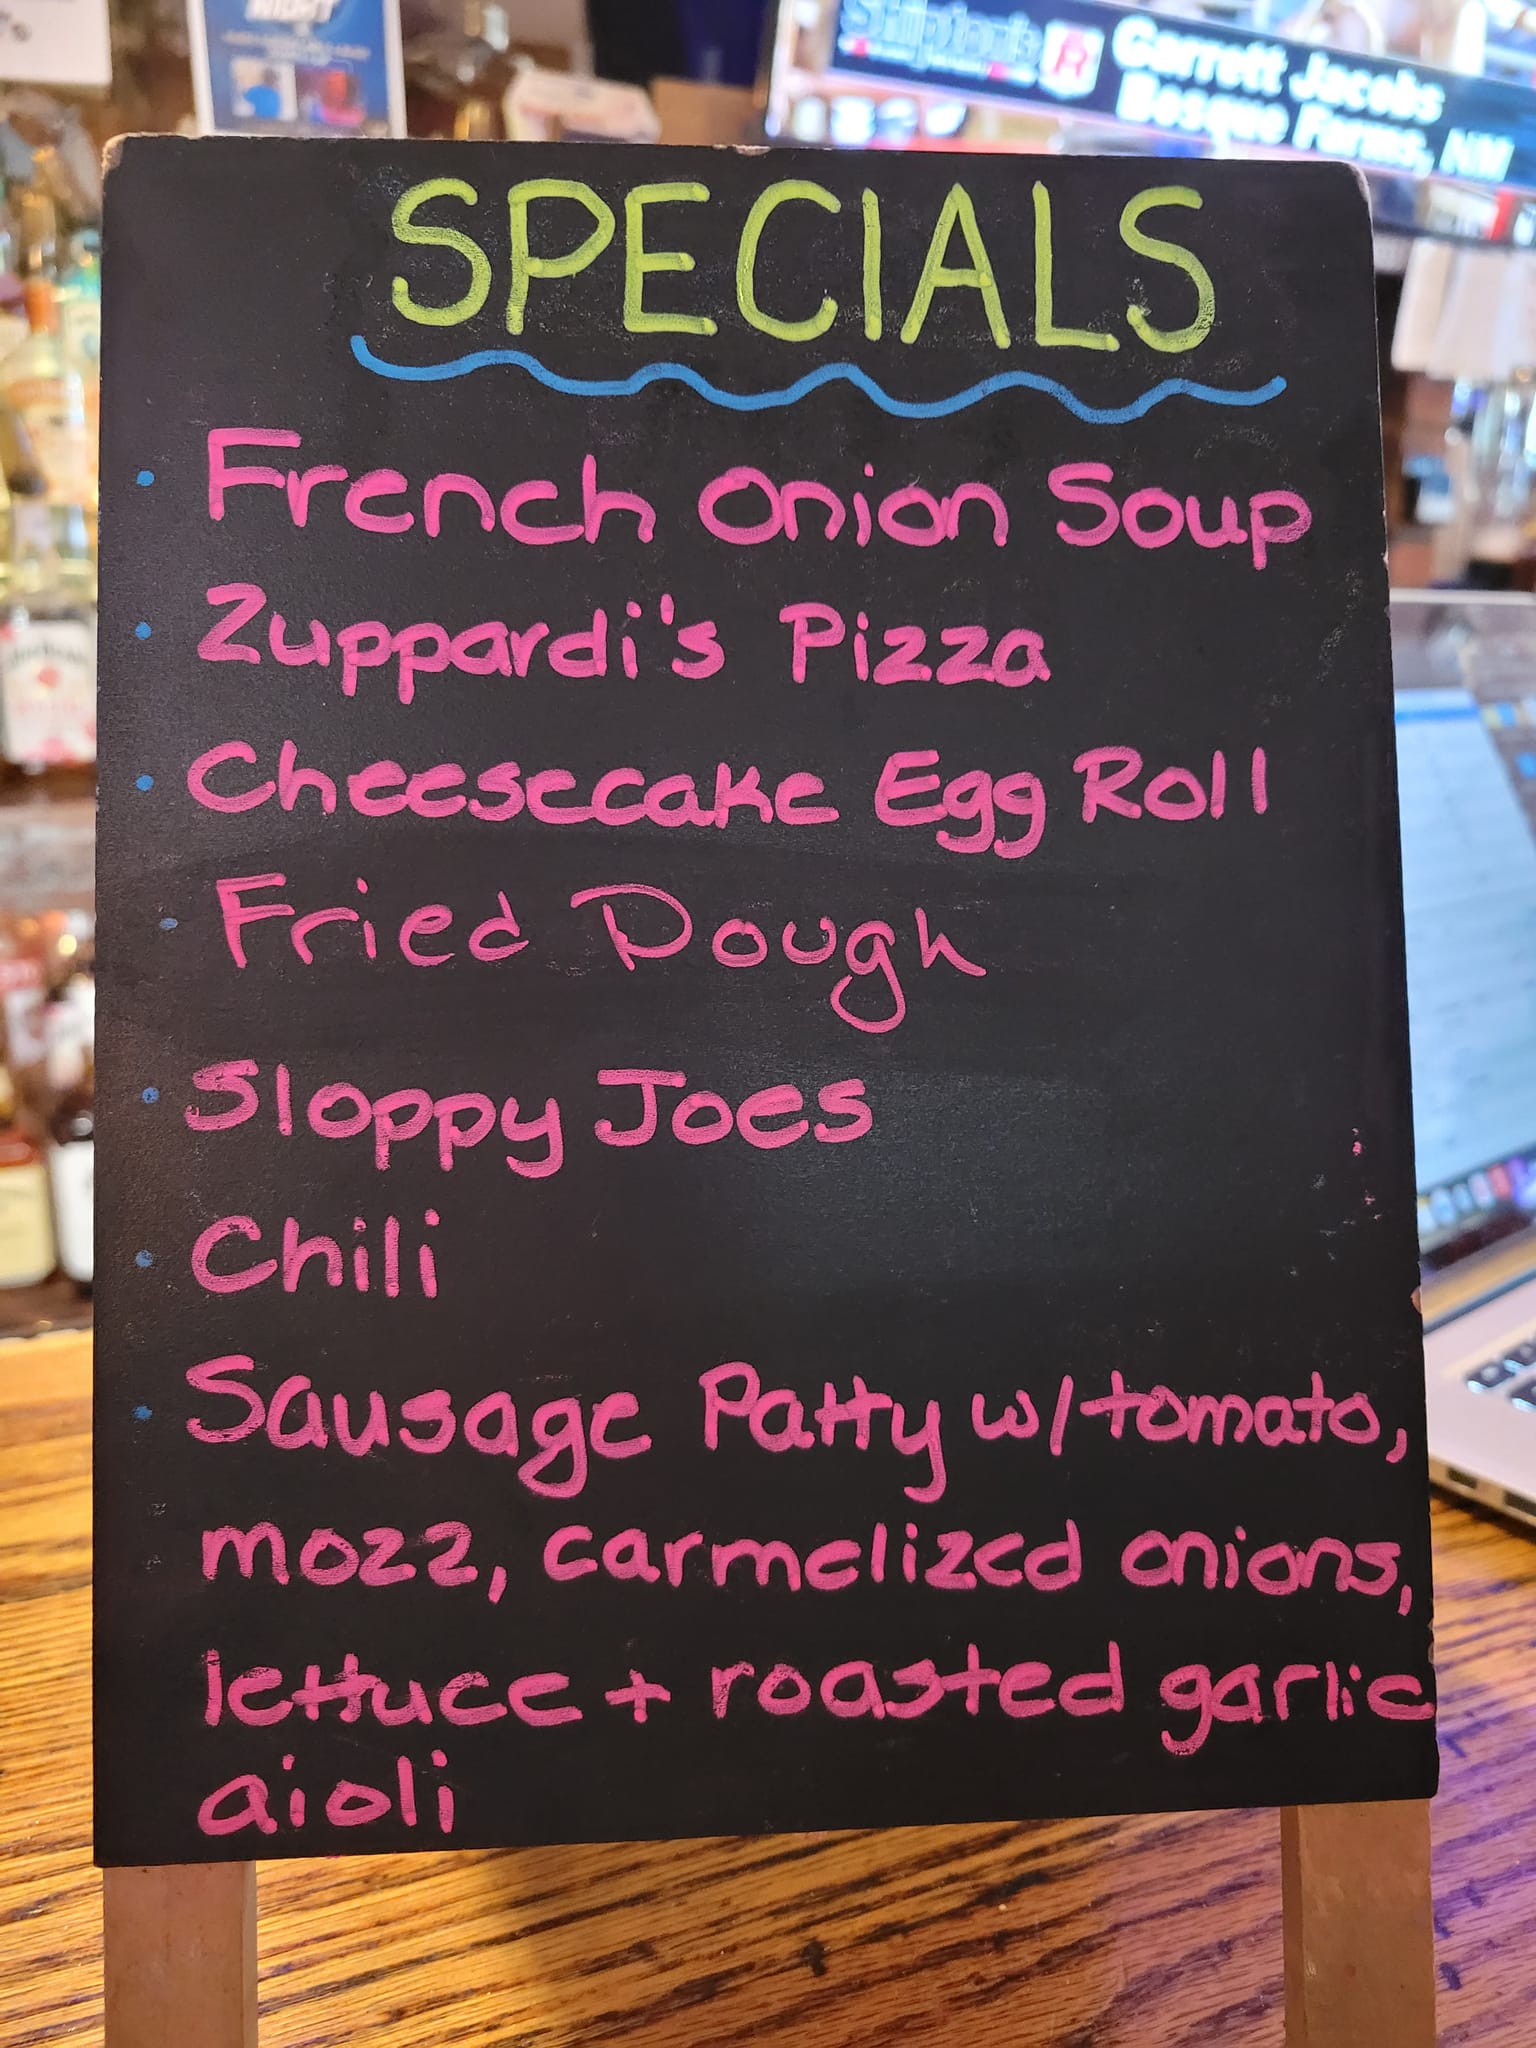 NIGHT
Garrett Jacobs
Bosque Farms, NM
SPECIALS
· French Onion Soup
· Zuppardi's Pizza
· Cheesecake Egg Roll
· Fried Dough
· Sloppy Joes
· Chili
· Sausage Patty w/ tomato,
mozz, carmelized onions,
lettuce + roasted garlic
aioli